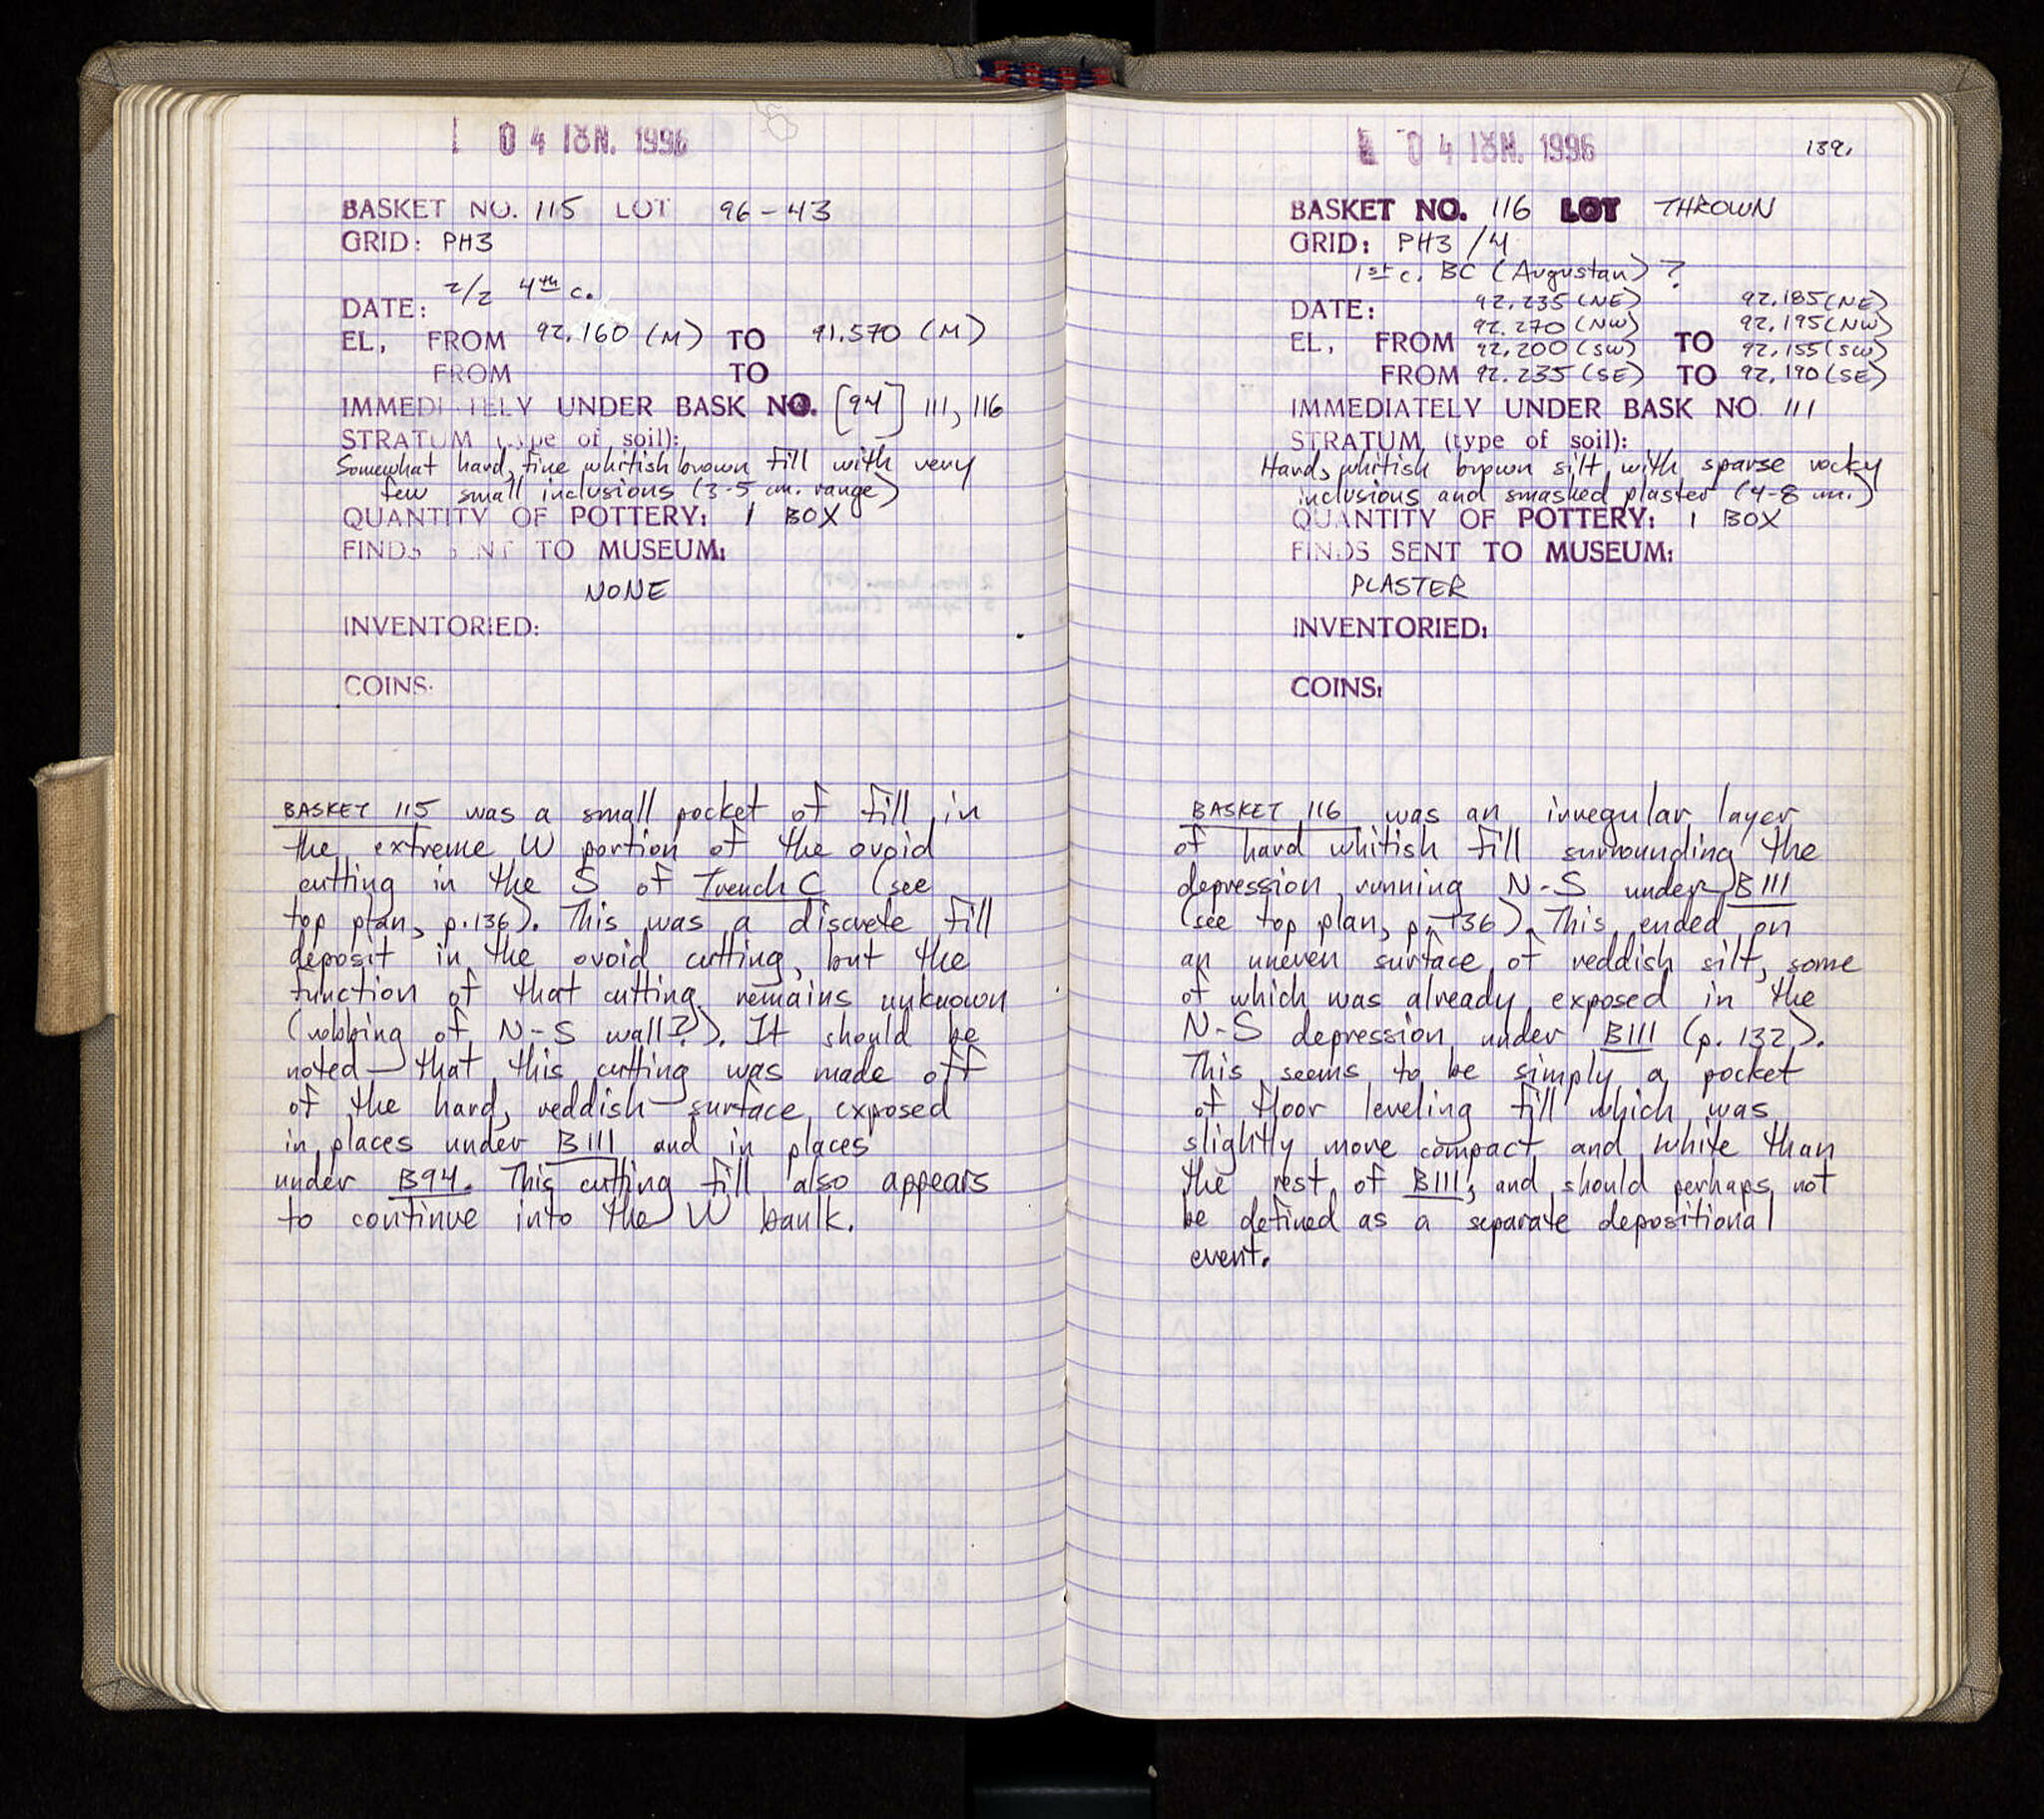 04 ΙΟΥΝ. 1996
BASKET NO. 115 LOT 96-43
GRID: PH3
DATE: 2/2 4th c.
EL, FROM 92.160 (M) TO 91.570 (M)
FROM TO
IMMEDIATELY UNDER BASK NO. [94] 111, 116
STRATUM (type of soil):
Somewhat hard, fine whitish brown fill with very
few small inclusions (3-5 cm. range)
QUANTITY OF POTTERY: 1 BOX
FINDS SENT TO MUSEUM:
NONE
INVENTORIED:
COINS:
BASKET 115 was a small pocket of fill in
the extreme W portion of the ovoid
cutting in the S of Trench C (see
top plan, p.136). This was a discrete fill
deposit in the ovoid cutting, but the
function of that cutting remains unknown
(robbing of N-S wall?). It should be
noted that this cutting was made off
of the hard, reddish surface exposed
in places under B111 and in places
under B94. This cutting fill also appears
to continue into the W baulk.
04 ΙΟΥΝ. 1996
139.
BASKET NO. 116 LOT THROWN
GRID: PH3/4
1st c. BC (Augustan)?
DATE: 92.235 (NE) 92.185 (NE)
92.270 (NW) 92.195 (NW)
EL, FROM 92.200 (SW) TO 92.155 (SW)
FROM 92.235 (SE) TO 92.190 (SE)
IMMEDIATELY UNDER BASK NO 111
STRATUM (type of soil):
Hard, whitish brown silt, with sparse rocky
inclusions and smashed plaster (4-8 cm.)
QUANTITY OF POTTERY: 1 BOX
FINDS SENT TO MUSEUM:
PLASTER
INVENTORIED:
COINS:
BASKET 116 was an irregular layer
of hard whitish fill surrounding the
depression running N-S under B111
(see top plan, p. 136). This ended on
an uneven surface of reddish silt, some
of which was already exposed in the
N-S depression under B111 (p. 132).
This seems to be simply a pocket
of floor leveling fill which was
slightly more compact and white than
the rest of B111, and should perhaps not
be defined as a separate depositional
event.